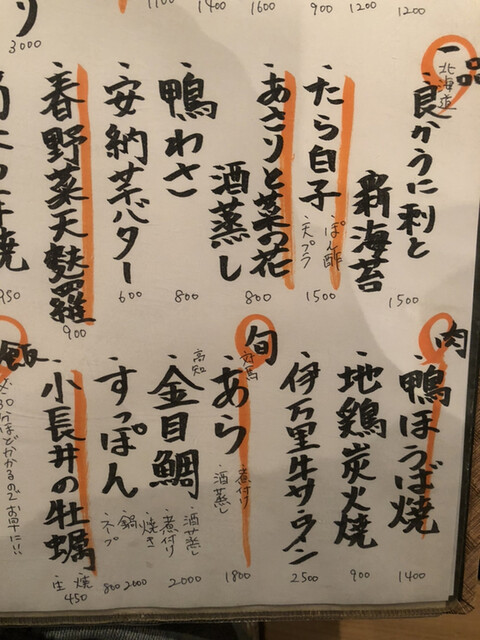 1100
1400
1600
900
1200
1200
り
3000
一品
北海道
・良かうに利と
新海苔
1500
・たら白子
・ぽん酢
・天プラ
1500
・あさりと菜の花
酒蒸し
800
・鴨わさ
800
・安納芋バター
600
・春野菜天麩羅
900
950
肉
・鴨ほうば焼
1400
・地鶏炭火焼
900
・伊万里牛サーロイン
2500
旬
対馬
・あら
・煮付け
・酒蒸し
1800
高知
・金目鯛
・酒蒸し
・煮付け
・焼き
2000
・すっぽん
・鍋
2000
・スープ
800
・小長井の牡蠣
・焼
・生
450
飯
30分ほどかかるので
お早に!!